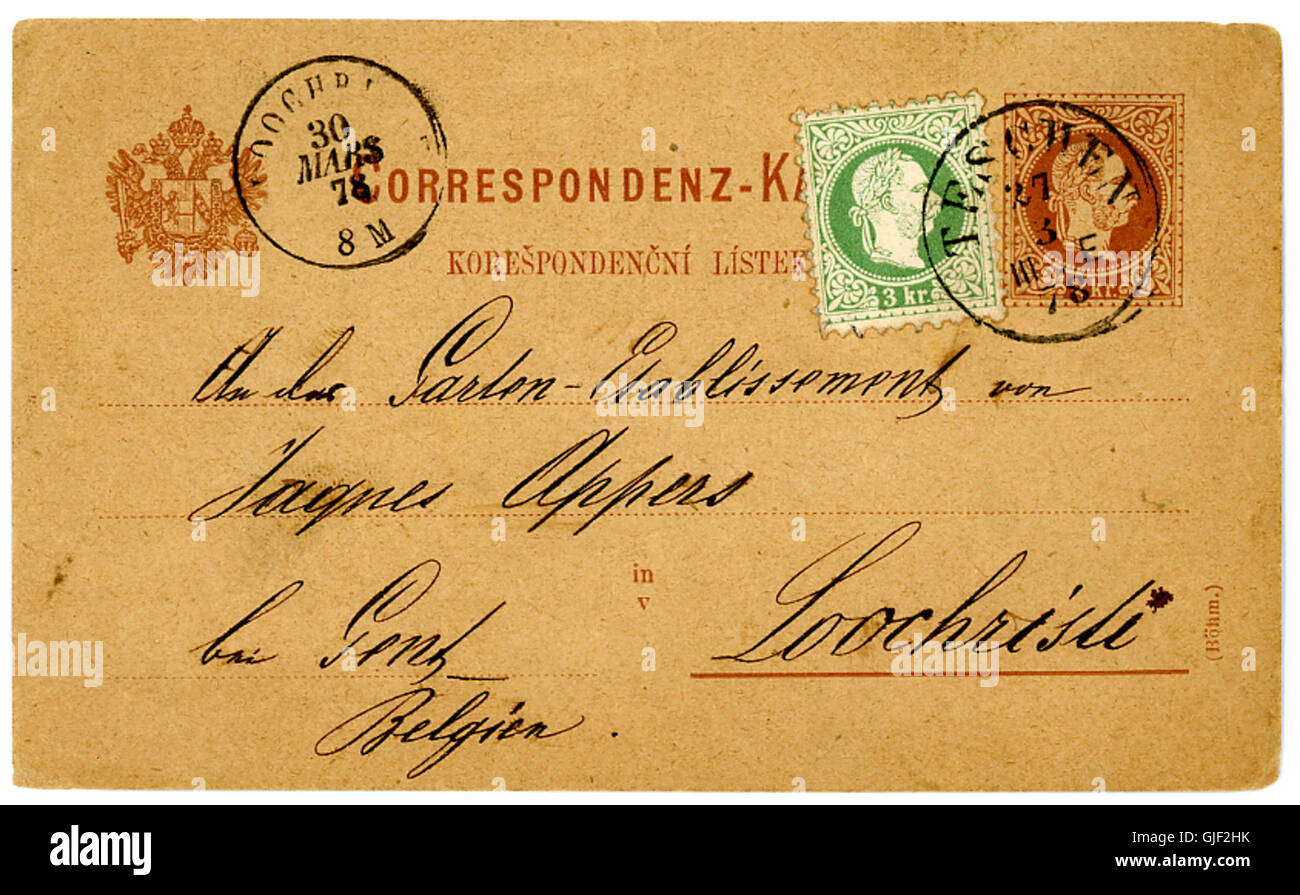 LOOCHRI
30
MARS
78
8 M
CORRESPONDENZ-KA
KOREŠPONDENČNÍ LÍSTEK
3 kr.
TESCHEN
27
3 E
III
78
kr.
An das Garten-Etablissement von
Jaques Appers
in
v
bei Gent
Loochristi
Belgien.
(Böhm.)
a
alamy stock photo
GJF2HK
www.alamy.com